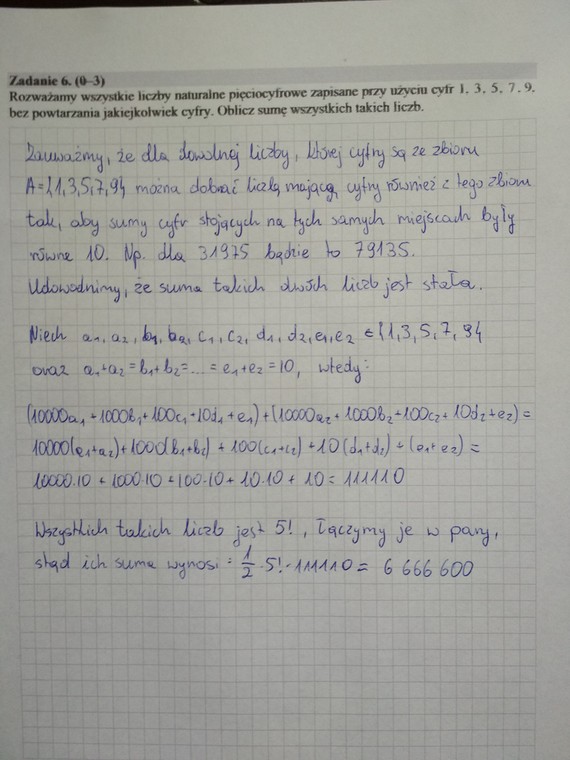 Zadanie 6. (0–3)
Rozważamy wszystkie liczby naturalne pięciocyfrowe zapisane przy użyciu cyfr 1, 3, 5, 7, 9,
bez powtarzania jakiejkolwiek cyfry. Oblicz sumę wszystkich takich liczb.
Zauważmy, że dla dowolnej liczby, której cyfry są ze zbioru
A={1,3,5,7,9} można dobrać liczbę mającą cyfry również z tego zbioru
tak, aby sumy cyfr stojących na tych samych miejscach były
równe 10. Np. dla 31975 będzie to 79135.
Udowodnimy, że suma takich dwóch liczb jest stała.
Niech a₁, a₂, b₁, b₂, c₁, c₂, d₁, d₂, e₁, e₂ ∈ {1,3,5,7,9}
oraz a₁+a₂ = b₁+b₂ = ... = e₁+e₂ = 10, wtedy:
(10000a₁ + 1000b₁ + 100c₁ + 10d₁ + e₁) + (10000a₂ + 1000b₂ + 100c₂ + 10d₂ + e₂) =
10000(a₁+a₂) + 1000(b₁+b₂) + 100(c₁+c₂) + 10(d₁+d₂) + (e₁+e₂) =
10000·10 + 1000·10 + 100·10 + 10·10 + 10 = 111110
Wszystkich takich liczb jest 5!, łączymy je w pary,
stąd ich suma wynosi: 1/2 · 5! · 111110 = 6 666 600